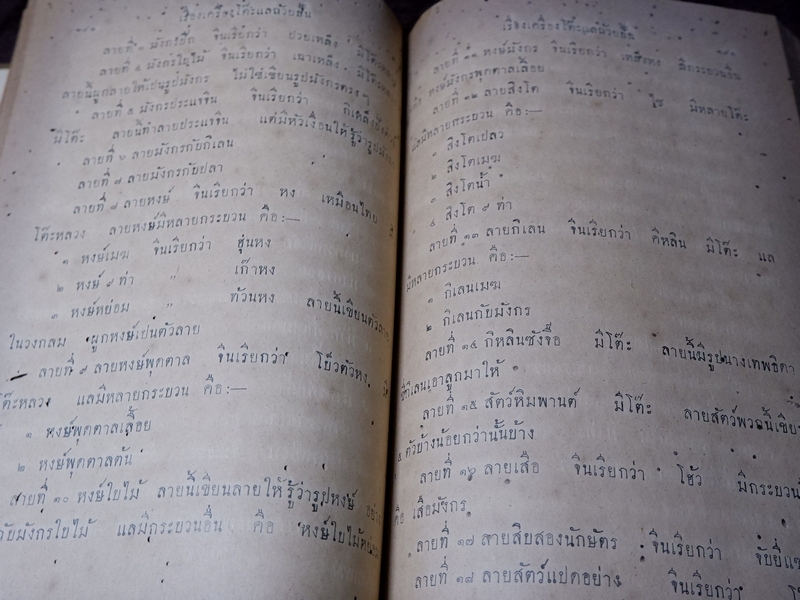 เรื่องเครื่องโต๊ะแลถ้วยปั้น
ลายที่ ๓ มังกรยี่ก๊ จีนเรียกว่า ป่วยเหลง มีโต๊ะหลวง
ลายที่ ๔ มังกรใบไม้ จีนเรียกว่า เฉาเหลง มีโต๊ะหลวง
ลายนี้ผูกลายให้เป็นรูปมังกร ไม่ใช่เขียนรูปมังกรตรงๆ
ลายที่ ๕ มังกรประแจจีน จีนเรียกว่า
มีโต๊ะ ลายนี้ทำลายประแจจีน แต่มีหัวเงื่อนให้รู้ว่ารูปมังกร
ลายที่ ๖ ลายมังกรกับกิเลน
ลายที่ ๗ ลายมังกรกับปลา
ลายที่ ๘ ลายหงษ์ จีนเรียกว่า หง เหมือนไทย มี
โต๊ะหลวง ลายหงษ์มีหลายกระบวน คือ:—
๑ หงษ์เมฆ จีนเรียกว่า ฮุ่นหง
๒ หงษ์ ๙ ท่า ,, เก๊าหง
๓ หงษ์หย่อม ,, ทวนหง ลายนี้เขียนตัวลาย
ในวงกลม ผูกหงษ์เป็นตัวลาย
ลายที่ ๙ ลายหงษ์พุดตาล จีนเรียกว่า โบ๋วตัวหง มี
โต๊ะหลวง แลมีหลายกระบวน คือ:—
๑ หงษ์พุดตาลเลื้อย
๒ หงษ์พุดตาลต้น
ลายที่ ๑๐ หงษ์ใบไม้ ลายนี้เขียนลายให้รู้ว่ารูปหงษ์ อย่าง
กับมังกรใบไม้ แลมีกระบวนอื่น คือ หงษ์ใบไม้
เรื่องเครื่องโต๊ะแลถ้วยปั้น
ลายที่ ๑๑ หงษ์มังกร จีนเรียกว่า เหล็งหง มีกระบวนอื่น
หงษ์มังกรพุดตาลเลื้อย
ลายที่ ๑๒ ลายสิงโต จีนเรียกว่า ไซ มีหลายโต๊ะ
แลมีหลายกระบวน คือ:—
๑ สิงโตเปลว
๒ สิงโตเมฆ
๓ สิงโตน้ำ
๔ สิงโต ๙ ท่า
ลายที่ ๑๓ ลายกิเลน จีนเรียกว่า คีหลิน มีโต๊ะ แล
มีหลายกระบวน คือ:—
๑ กิเลนเมฆ
๒ กิเลนกับมังกร
ลายที่ ๑๔ กิหลินซังจื๊อ มีโต๊ะ ลายนี้มีรูปนางเทพธิดา
ขี่กิเลนเอาลูกมาให้
ลายที่ ๑๕ สัตว์หิมพานต์ มีโต๊ะ ลายสัตว์พวกนี้เขียน
๘ ตัวบ้างน้อยกว่านั้นบ้าง
ลายที่ ๑๖ ลายเสือ จีนเรียกว่า โฮ้ว มีกระบวน
คือ เสือมังกร
ลายที่ ๑๗ ลายสิบสองนักษัตร จีนเรียกว่า จับยี่แซ
ลายที่ ๑๘ ลายสัตว์แปดอย่าง จีนเรียกว่า